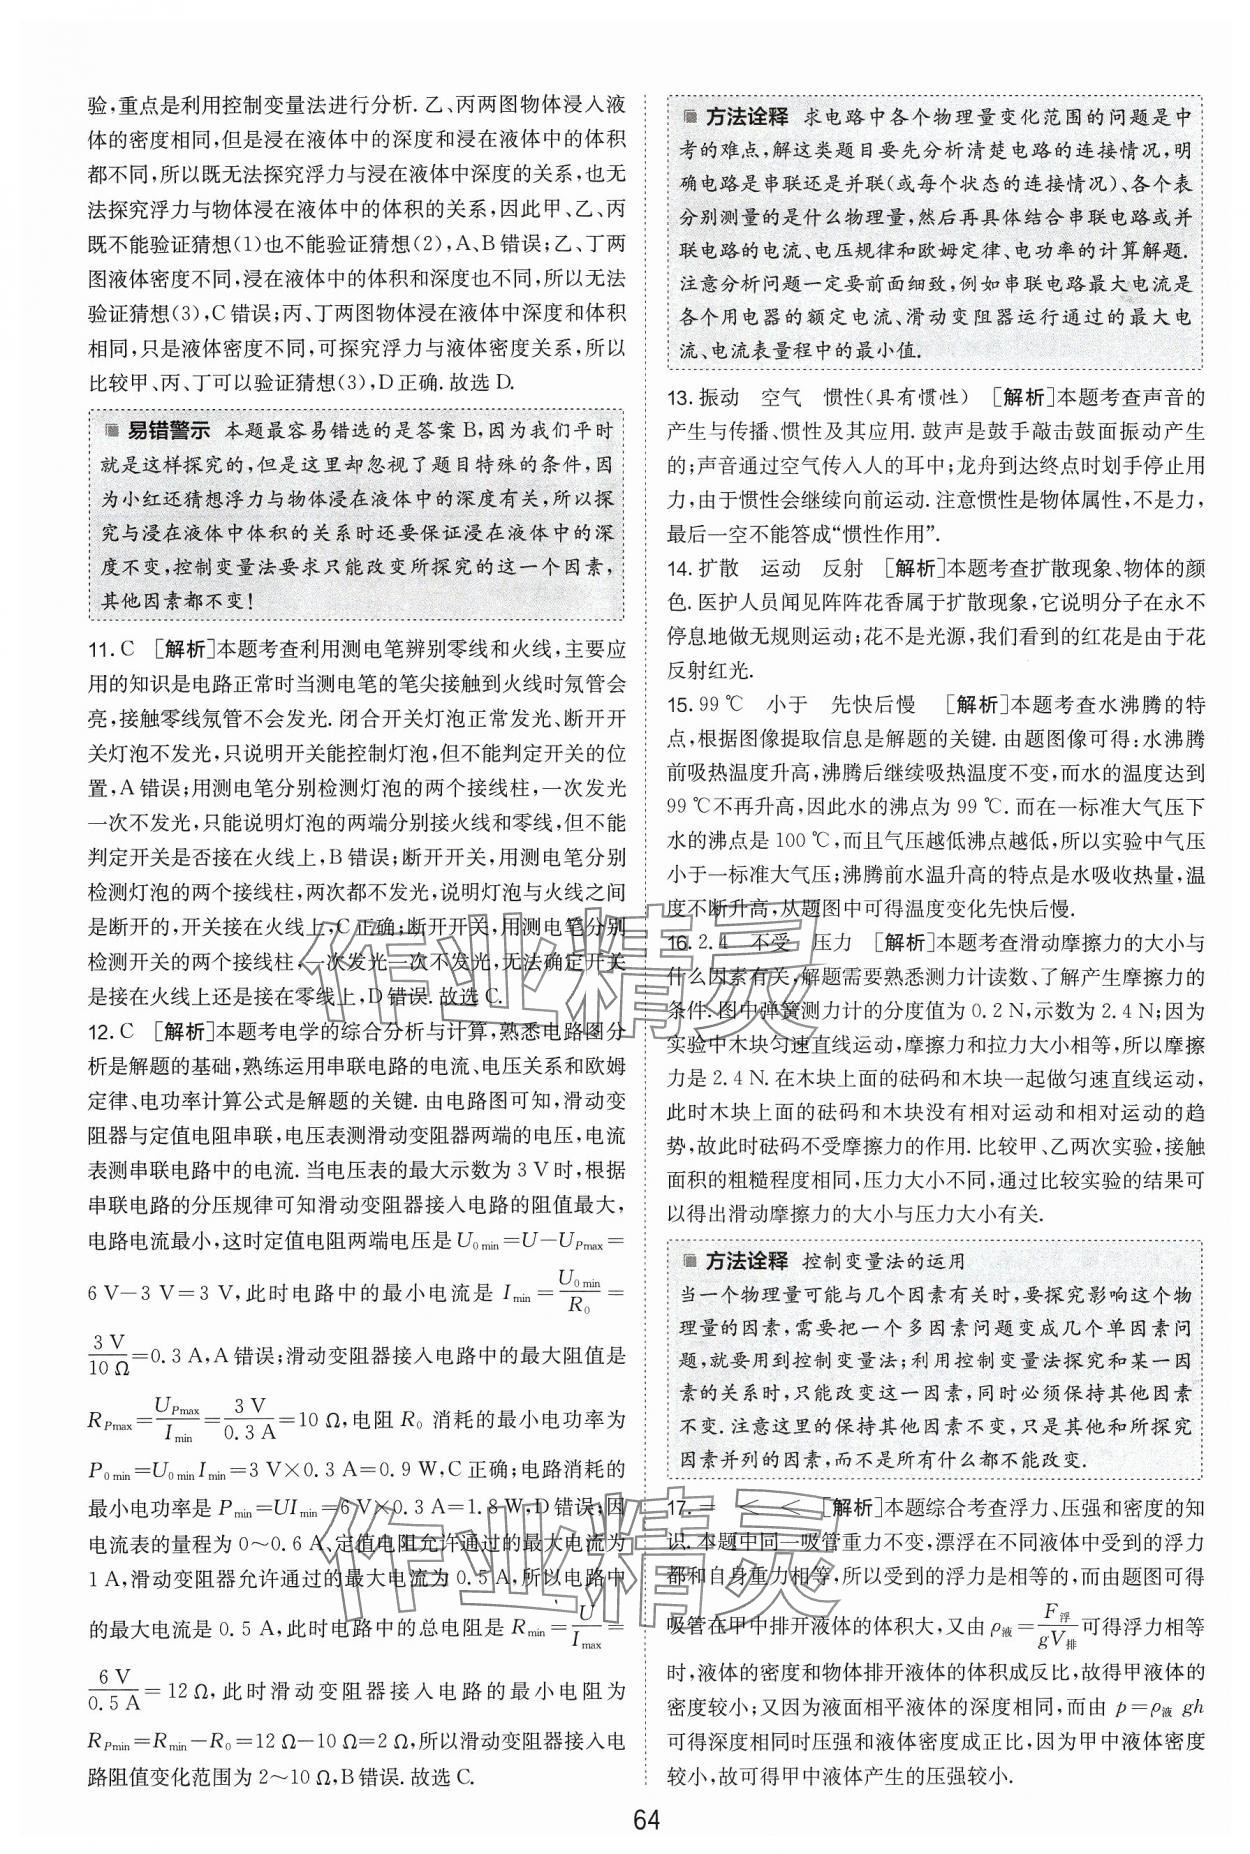 验,重点是利用控制变量法进行分析. 乙、丙两图物体浸入液
体的密度相同,但是浸在液体中的深度和浸在液体中的体积
都不同,所以既无法探究浮力与浸在液体中深度的关系,也无
法探究浮力与物体浸在液体中的体积的关系,因此甲、乙、丙
既不能验证猜想(1)也不能验证猜想(2),A、B错误;乙、丁两
图液体密度不同,浸在液体中的体积和深度也不同,所以无法
验证猜想(3),C错误;丙、丁两图物体浸在液体中深度和体积
相同,只是液体密度不同,可探究浮力与液体密度关系,所以
比较甲、丙、丁可以验证猜想(3),D正确. 故选D.
易错警示 本题最容易错选的是答案B,因为我们平时
就是这样探究的,但是这里却忽视了题目特殊的条件,因
为小红还猜想浮力与物体浸在液体中的深度有关,所以探
究与浸在液体中体积的关系时还要保证浸在液体中的深
度不变,控制变量法要求只能改变所探究的这一个因素,
其他因素都不变!
11. C [解析]本题考查利用测电笔辨别零线和火线,主要应
用的知识是电路正常时当测电笔的笔尖接触到火线时氖管会
亮,接触零线氖管不会发光. 闭合开关灯泡正常发光、断开开
关灯泡不发光,只说明开关能控制灯泡,但不能判定开关的位
置,A错误;用测电笔分别检测灯泡的两个接线柱,一次发光
一次不发光,只能说明灯泡的两端分别接火线和零线,但不能
判定开关是否接在火线上,B错误;断开开关,用测电笔分别
检测灯泡的两个接线柱,两次都不发光,说明灯泡与火线之间
是断开的,开关接在火线上,C正确;断开开关,用测电笔分别
检测开关的两个接线柱,一次发光一次不发光,无法确定开关
是接在火线上还是接在零线上,D错误. 故选C.
12. C [解析]本题考电学的综合分析与计算,熟悉电路图分
析是解题的基础,熟练运用串联电路的电流、电压关系和欧姆
定律、电功率计算公式是解题的关键. 由电路图可知,滑动变
阻器与定值电阻串联,电压表测滑动变阻器两端的电压,电流
表测串联电路中的电流. 当电压表的最大示数为3 V时,根据
串联电路的分压规律可知滑动变阻器接入电路的阻值最大,
电路电流最小,这时定值电阻两端电压是 U₀ min=U−UPmax=
6 V−3 V=3 V,此时电路中的最小电流是 Imin=U₀ min/R₀=
3 V/10 Ω=0.3 A,A错误;滑动变阻器接入电路中的最大阻值是
RPmax=UPmax/Imin=3 V/0.3 A=10 Ω,电阻 R₀ 消耗的最小电功率为
P₀ min=U₀ min Imin=3 V×0.3 A=0.9 W,C正确;电路消耗的
最小电功率是 Pmin=UImin=6 V×0.3 A=1.8 W,D错误;因
电流表的量程为0～0.6 A、定值电阻允许通过的最大电流为
1 A,滑动变阻器允许通过的最大电流为0.5 A,所以电路中
的最大电流是0.5 A,此时电路中的总电阻是 Rmin=U/Imax=
6 V/0.5 A=12 Ω,此时滑动变阻器接入电路中的最小电阻为
RPmin=Rmin−R₀=12 Ω−10 Ω=2 Ω,所以滑动变阻器接入电
路阻值变化范围为2～10 Ω,B错误. 故选C.
方法诠释 求电路中各个物理量变化范围的问题是中
考的难点,解这类题目要先分析清楚电路的连接情况,明
确电路是串联还是并联(或每个状态的连接情况)、各个表
分别测量的是什么物理量,然后再具体结合串联电路或并
联电路的电流、电压规律和欧姆定律、电功率的计算解题.
注意分析问题一定要前面细致,例如串联电路最大电流是
各个用电器的额定电流、滑动变阻器运行通过的最大电
流、电流表量程中的最小值.
13. 振动 空气 惯性(具有惯性) [解析]本题考查声音的
产生与传播、惯性及其应用. 鼓声是鼓手敲击鼓面振动产生
的;声音通过空气传入人的耳中;龙舟到达终点时划手停止用
力,由于惯性会继续向前运动. 注意惯性是物体属性,不是力,
最后一空不能答成“惯性作用”.
14. 扩散 运动 反射 [解析]本题考查扩散现象、物体的颜
色. 医护人员闻见阵阵花香属于扩散现象,它说明分子在永不
停息地做无规则运动;花不是光源,我们看到的红花是由于花
反射红光.
15. 99 ℃ 小于 先快后慢 [解析]本题考查水沸腾的特
点,根据图像提取信息是解题的关键. 由题图像可得:水沸腾
前吸热温度升高,沸腾后继续吸热温度不变,而水的温度达到
99 ℃不再升高,因此水的沸点为99 ℃. 而在一标准大气压下
水的沸点是100 ℃,而且气压越低沸点越低,所以实验中气压
小于一标准大气压;沸腾前水温升高的特点是水吸收热量,温
度不断升高,从题图中可得温度变化先快后慢.
16. 2.4 不受 压力 [解析]本题考查滑动摩擦力的大小与
什么因素有关,解题需要熟悉测力计读数、了解产生摩擦力的
条件. 图中弹簧测力计的分度值为0.2 N,示数为2.4 N;因为
实验中木块匀速直线运动,摩擦力和拉力大小相等,所以摩擦
力是2.4 N. 在木块上面的砝码和木块一起做匀速直线运动,
此时木块上面的砝码和木块没有相对运动和相对运动的趋
势,故此时砝码不受摩擦力的作用. 比较甲、乙两次实验,接触
面积的粗糙程度相同,压力大小不同,通过比较实验的结果可
以得出滑动摩擦力的大小与压力大小有关.
方法诠释 控制变量法的运用
当一个物理量可能与几个因素有关时,要探究影响这个物
理量的因素,需要把一个多因素问题变成几个单因素问
题,就要用到控制变量法;利用控制变量法探究和某一因
素的关系时,只能改变这一因素,同时必须保持其他因素
不变. 注意这里的保持其他因素不变,只是其他和所探究
因素并列的因素,而不是所有什么都不能改变.
17. = < < [解析]本题综合考查浮力、压强和密度的知
识. 本题中同一吸管重力不变,漂浮在不同液体中受到的浮力
都和自身重力相等,所以受到的浮力是相等的,而由题图可得
吸管在甲中排开液体的体积大,又由 ρ液=F浮/gV排 可得浮力相等
时,液体的密度和物体排开液体的体积成反比,故得甲液体的
密度较小;又因为液面相平液体的深度相同,而由 p=ρ液 gh
可得深度相同时压强和液体密度成正比,因为甲中液体密度
较小,故可得甲中液体产生的压强较小.
作业精灵
作业精灵
64